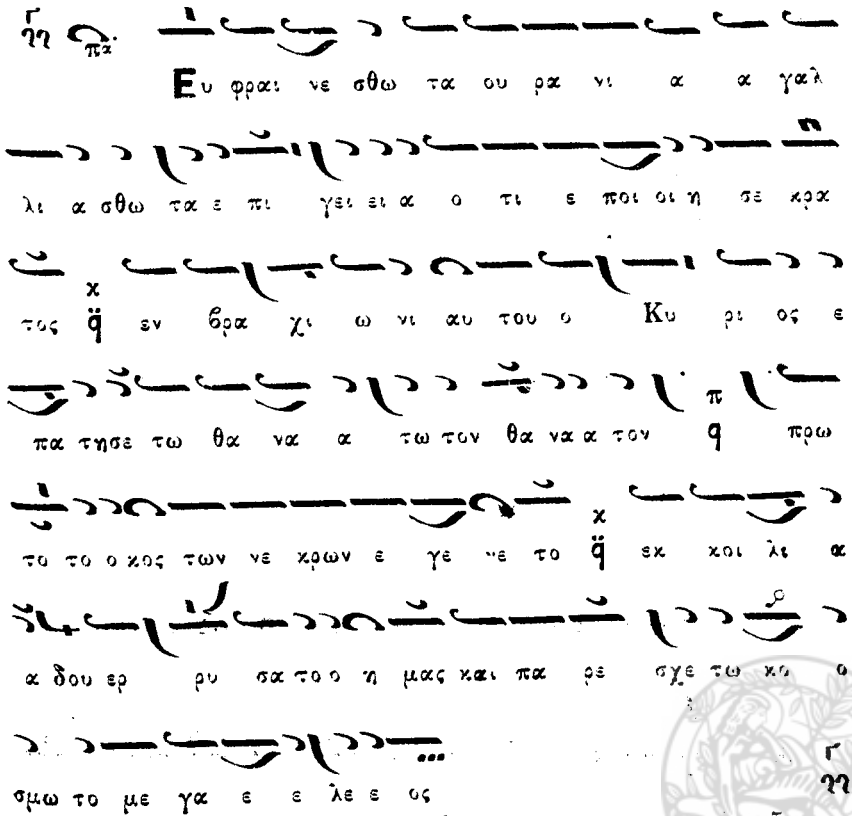 πα Ευ φραι νε σθω τα ου ρα νι α α γαλ
λι α σθω τα ε πι γει ει α ο τι ε ποι οι η σε κρα
τος κ q̈ εν βρα χι ω νι αυ του ο Κυ ρι ος ε
πα τησε τω θα να α τω τον θα να α τον π q πρω
το το ο κος των νε κρων ε γε νε το κ q̈ εκ κοι λι α
α δου ερ ρυ σα το ο η μας και πα ρε σχε τω κο ο
σμω το με γα ε ε λε ε ος